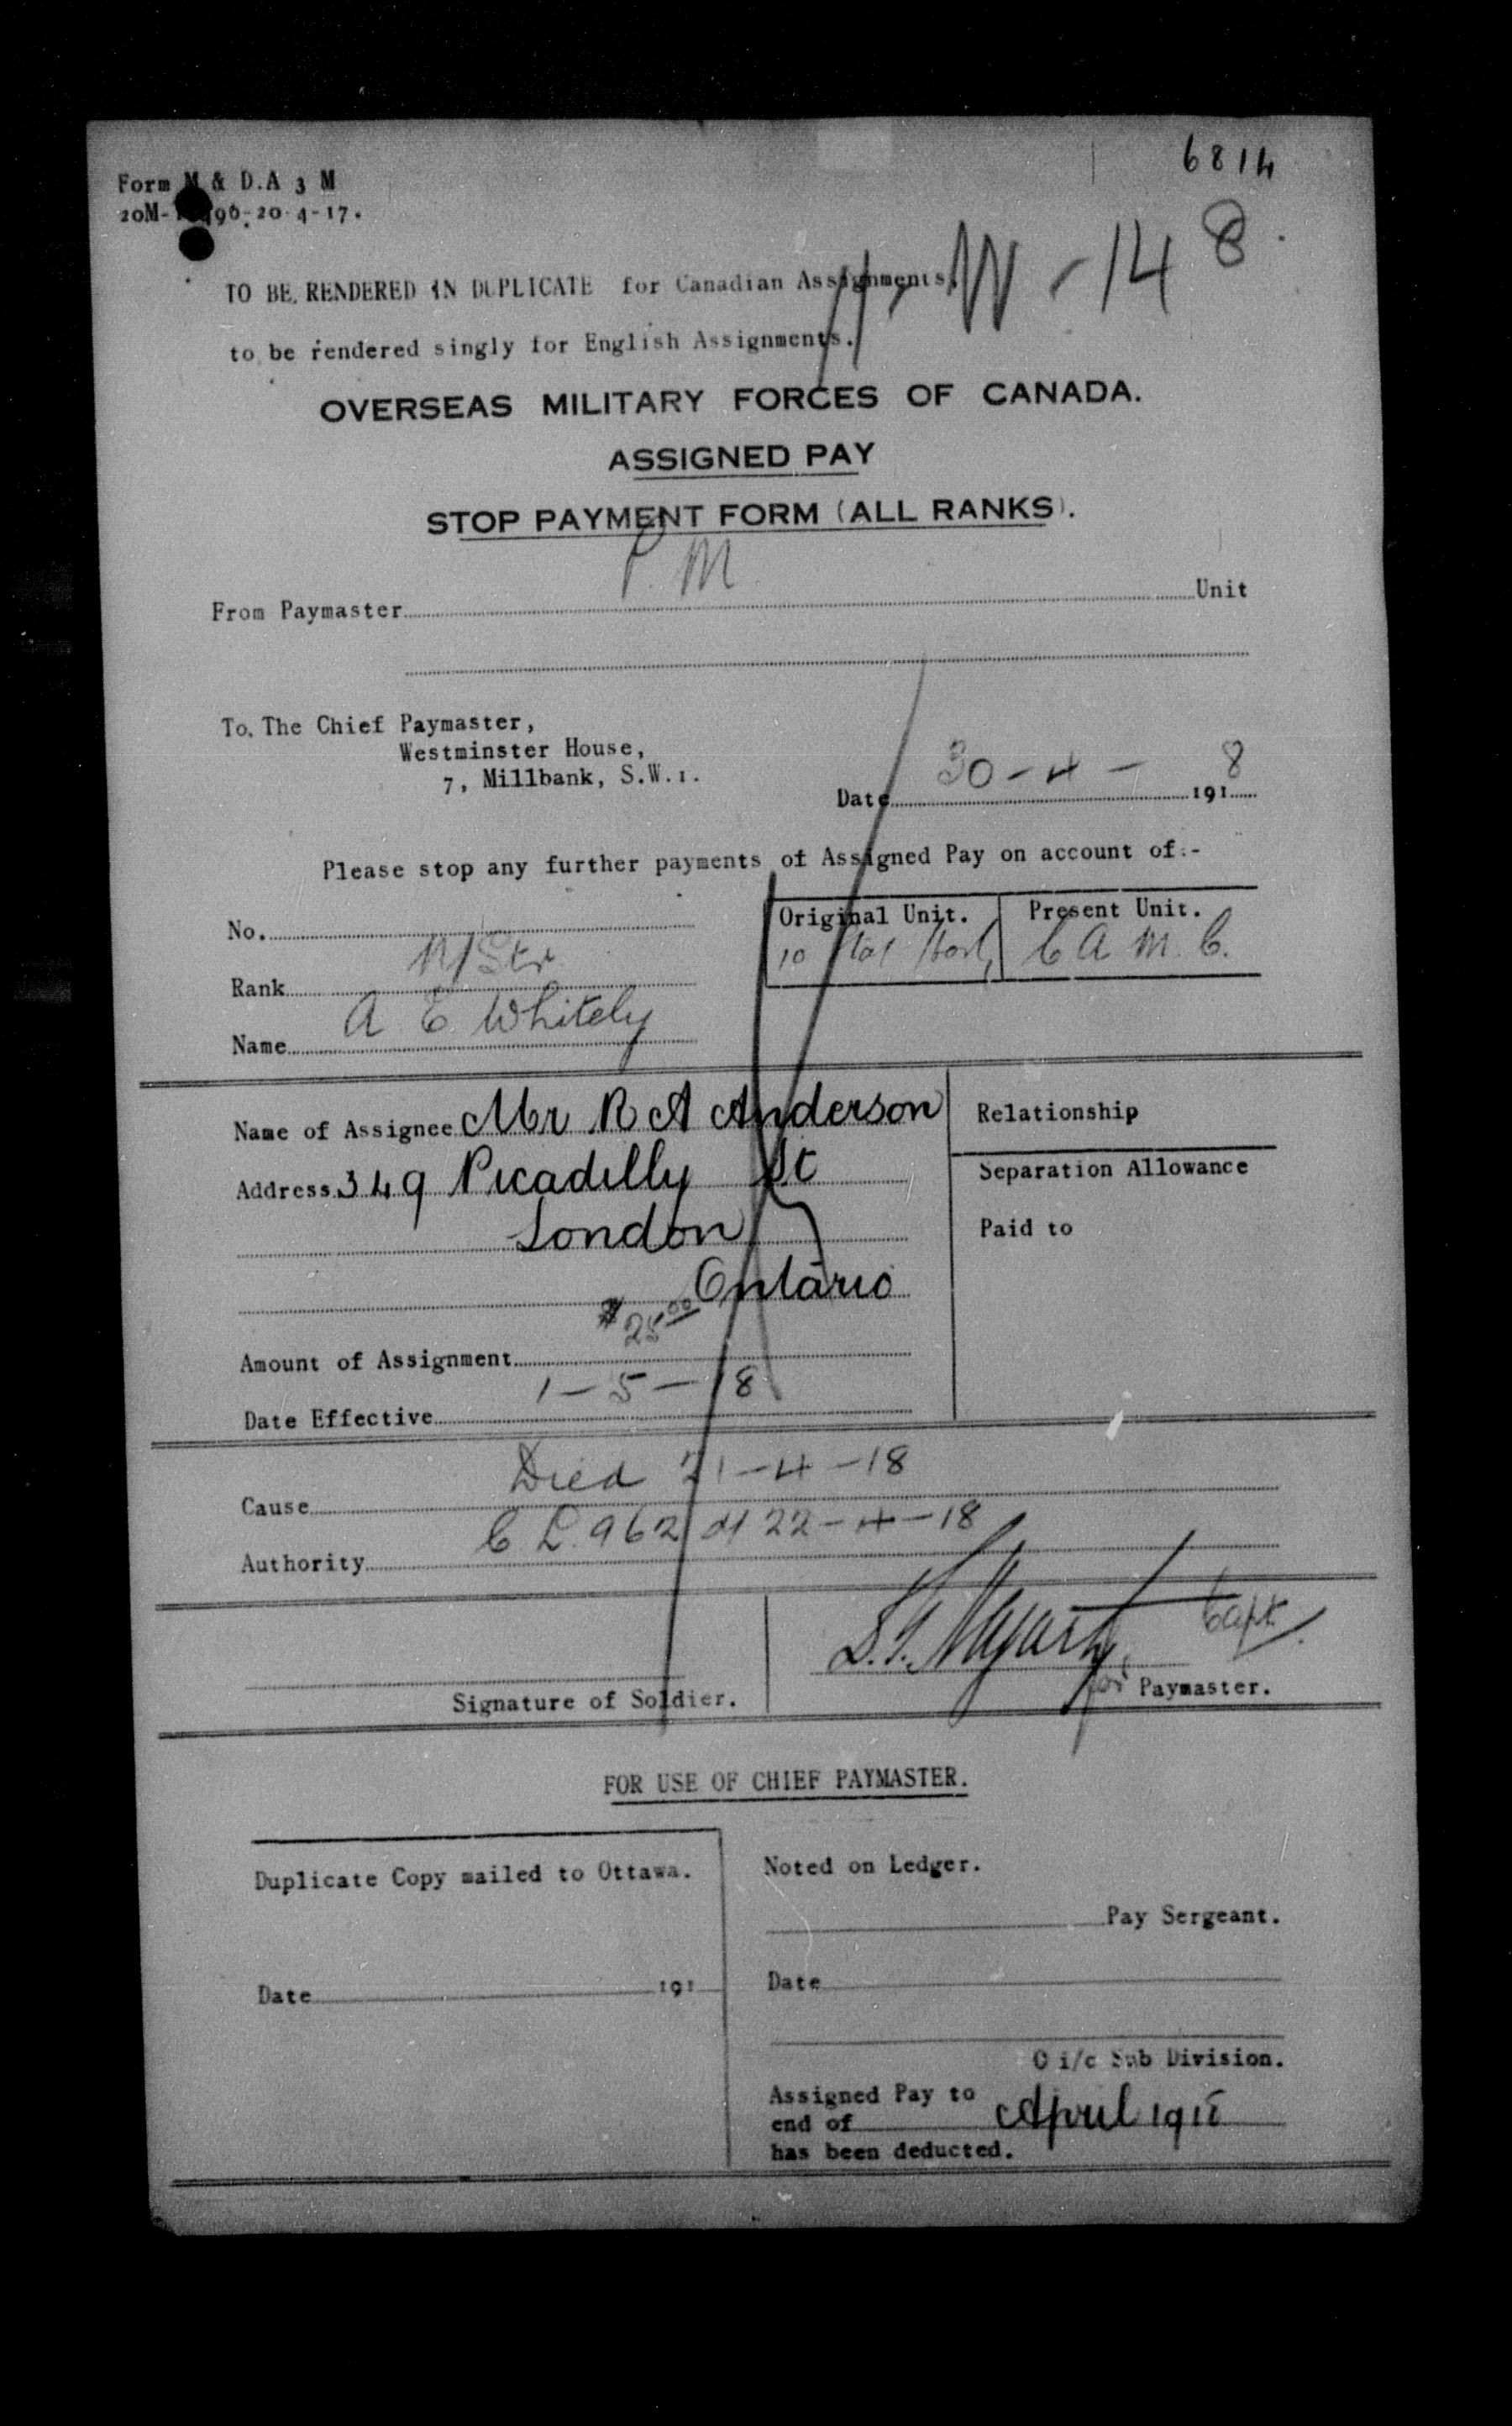 6814
Form M & D.A 3 M
20M- 96-20-4-17.
W-148.
TO BE RENDERED IN DUPLICATE for Canadian Assignments,
to be rendered singly for English Assignments.
OVERSEAS MILITARY FORCES OF CANADA.
ASSIGNED PAY
STOP PAYMENT FORM (ALL RANKS).
From Paymaster P. M. Unit
To, The Chief Paymaster,
Westminster House,
7, Millbank, S.W.1.
Date 30-4- 1918
Please stop any further payments of Assigned Pay on account of:-
No.
Original Unit. Present Unit.
10 Stat Hosp, C A M. C.
Rank N/Str
Name A E Whitely
Name of Assignee Mr R A Anderson
Relationship
Address 349 Picadilly St
Separation Allowance
London
Paid to
Ontario
Amount of Assignment $25.00
Date Effective 1-5-18
Cause Died 21-4-18
Authority C L. 962 d/ 22-4-18
Capt.
Signature of Soldier.
for Paymaster.
FOR USE OF CHIEF PAYMASTER.
Duplicate Copy mailed to Ottawa.
Noted on Ledger.
Pay Sergeant.
Date 191
Date
O i/c Sub Division.
Assigned Pay to
end of April 1918
has been deducted.